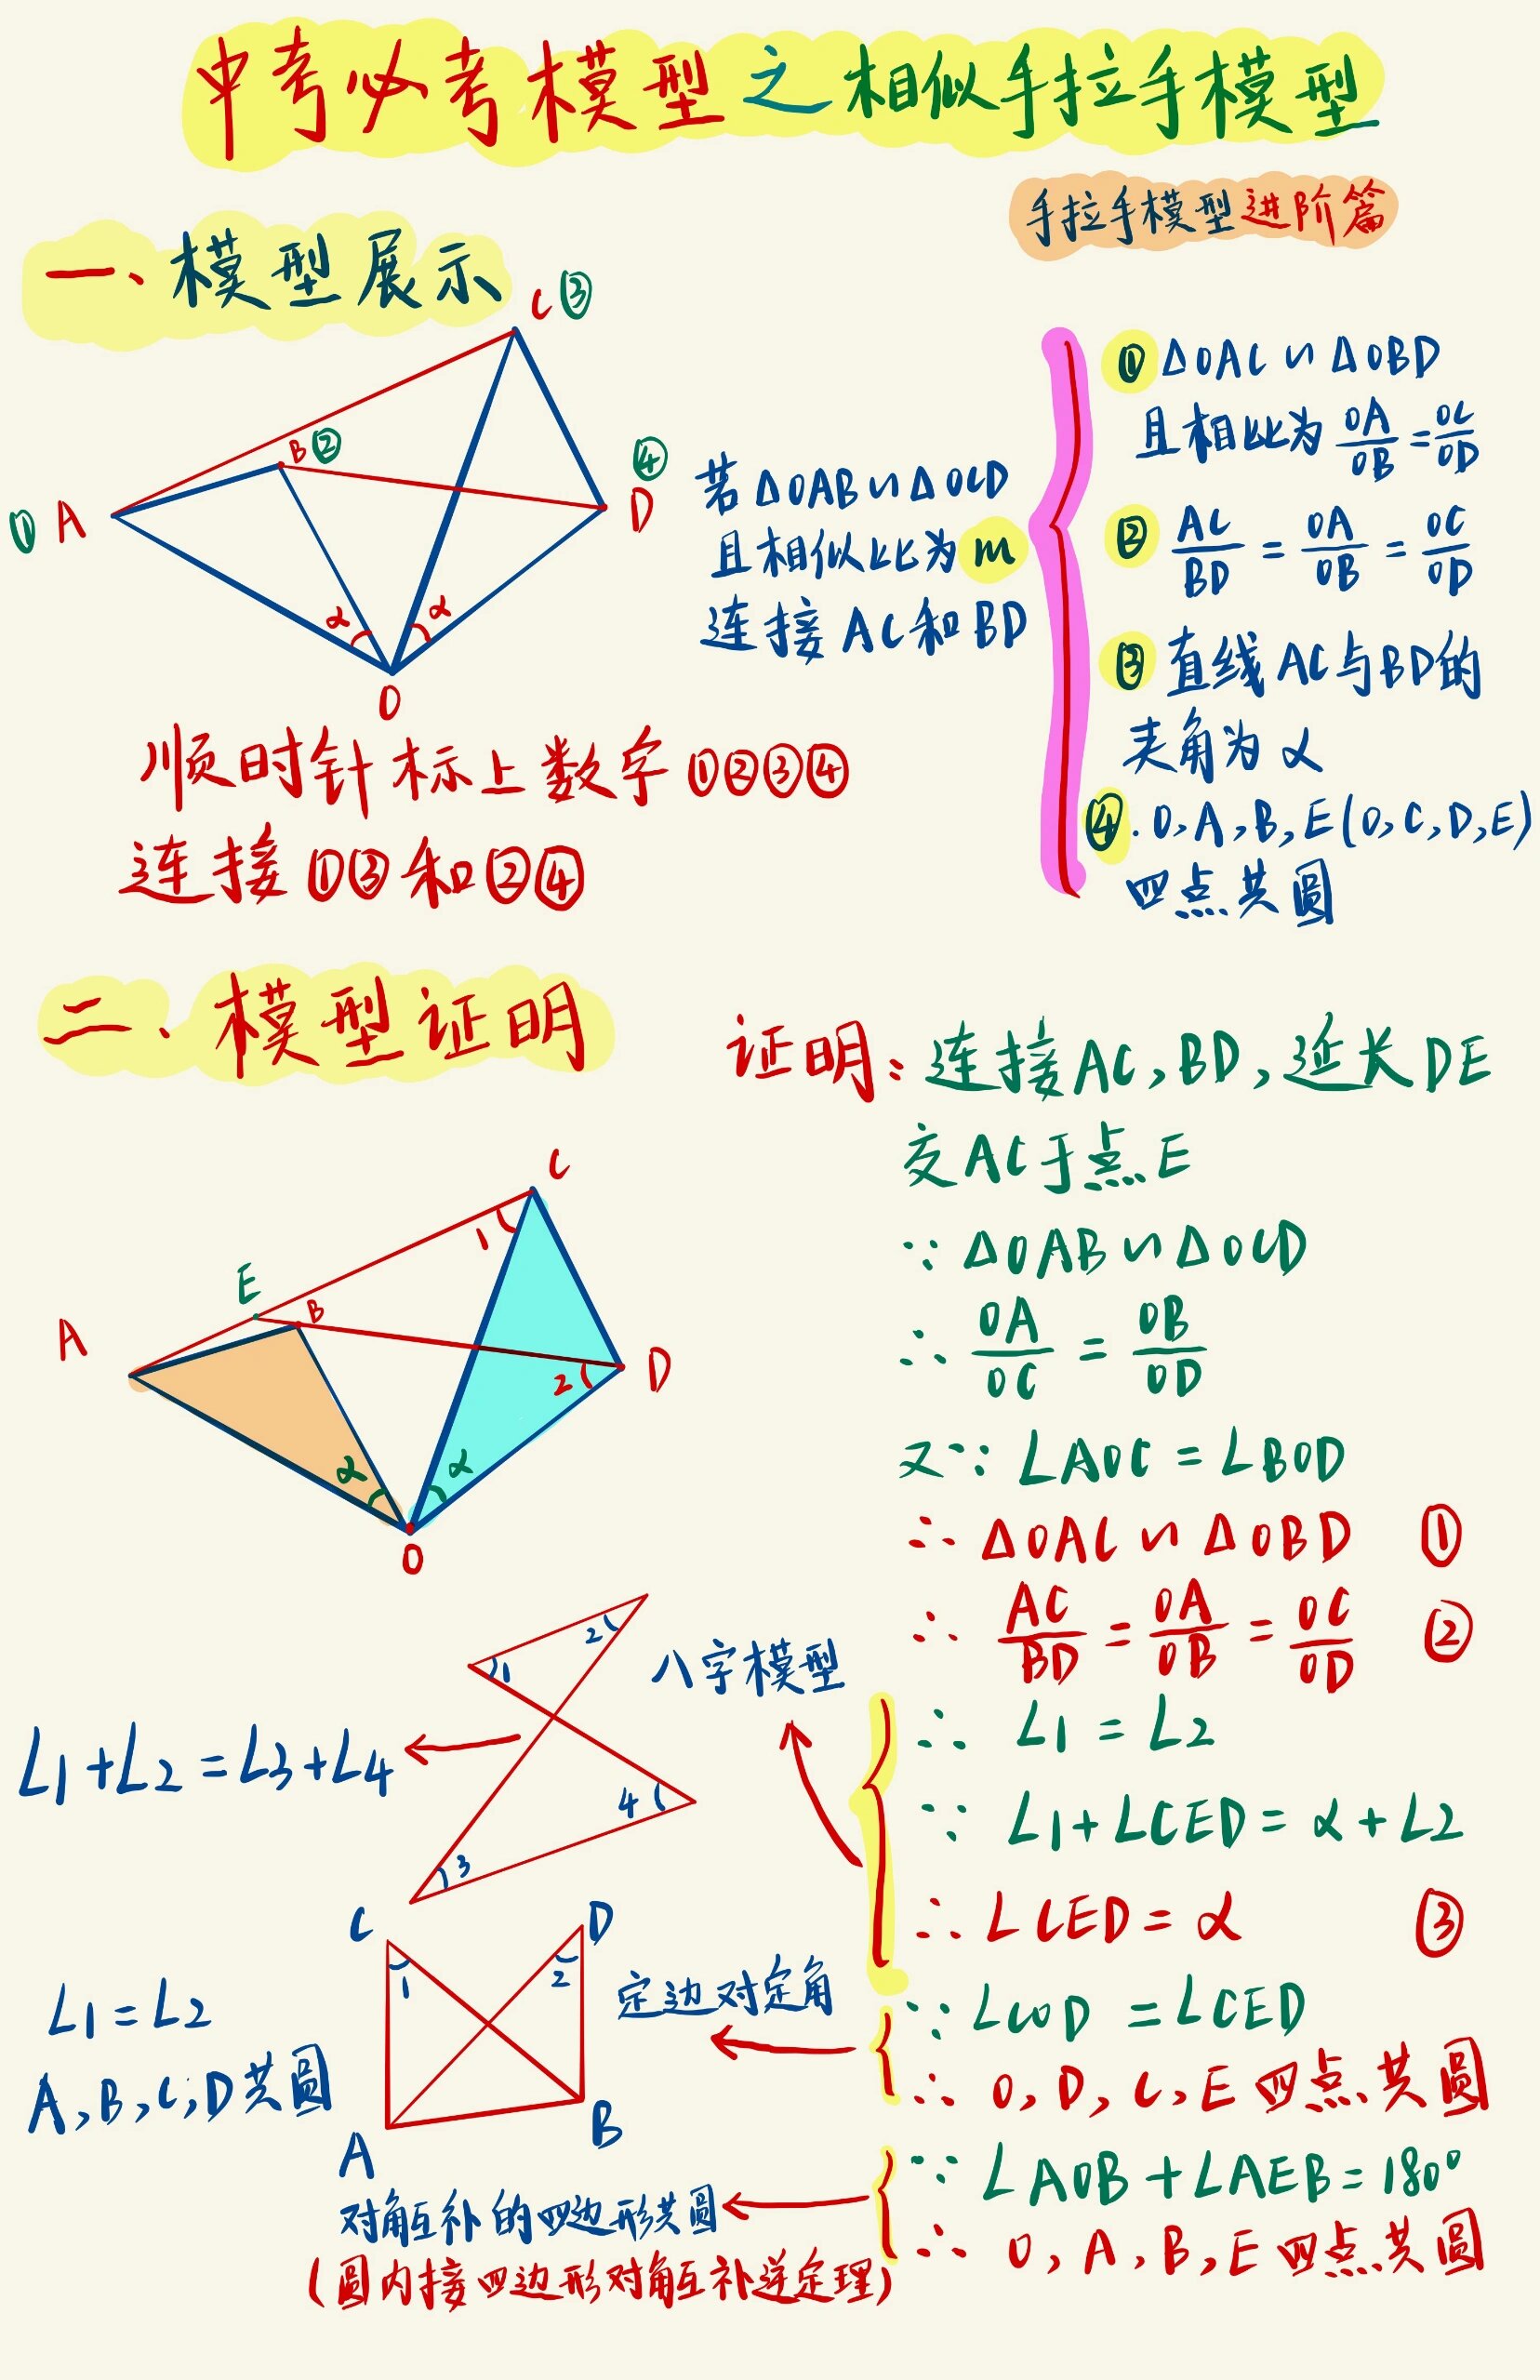 中考必考模型之相似手拉手模型
手拉手模型进阶篇
一、模型展示
C ③
B ②
④
① A
D
α α
O
若△OAB∽△OCD
且相似比为m
连接AC和BD
① △OAC∽△OBD
且相比为 OA/OB = OC/OD
② AC/BD = OA/OB = OC/OD
③ 直线AC与BD的
夹角为α
④. O,A,B,E(O,C,D,E)
四点共圆
顺时针标上数字①②③④
连接①③和②④
二、模型证明
证明：连接AC,BD,延长DE
交AC于点E
∵ △OAB∽△OCD
∴ OA/OC = OB/OD
又∵ ∠AOC = ∠BOD
∴ △OAC∽△OBD ①
∴ AC/BD = OA/OB = OC/OD ②
∴ ∠1 = ∠2
∵ ∠1+∠CED = α+∠2
∴ ∠CED = α ③
∵ ∠COD = ∠CED
∴ O,D,C,E四点共圆
∵ ∠AOB+∠AEB=180°
∴ O,A,B,E四点共圆
C
1
E
B
A
D
2
α α
O
2
1
八字模型
∠1+∠2=∠3+∠4
4
3
C D
1 2
定边对定角
∠1=∠2
A,B,C,D共圆
A B
对角互补的四边形共圆
(圆内接四边形对角互补逆定理)